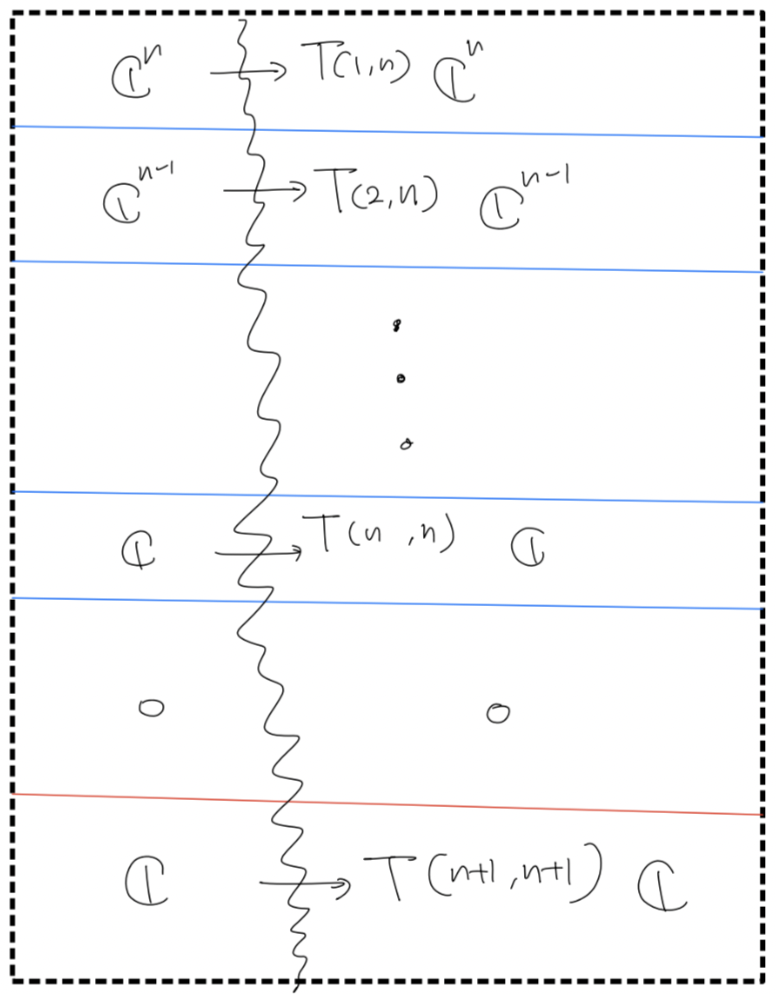 ℂⁿ → T(1,n) ℂⁿ
ℂⁿ⁻¹ → T(2,n) ℂⁿ⁻¹
⋮
ℂ → T(n,n) ℂ
0 0
ℂ → T(n+1,n+1) ℂ